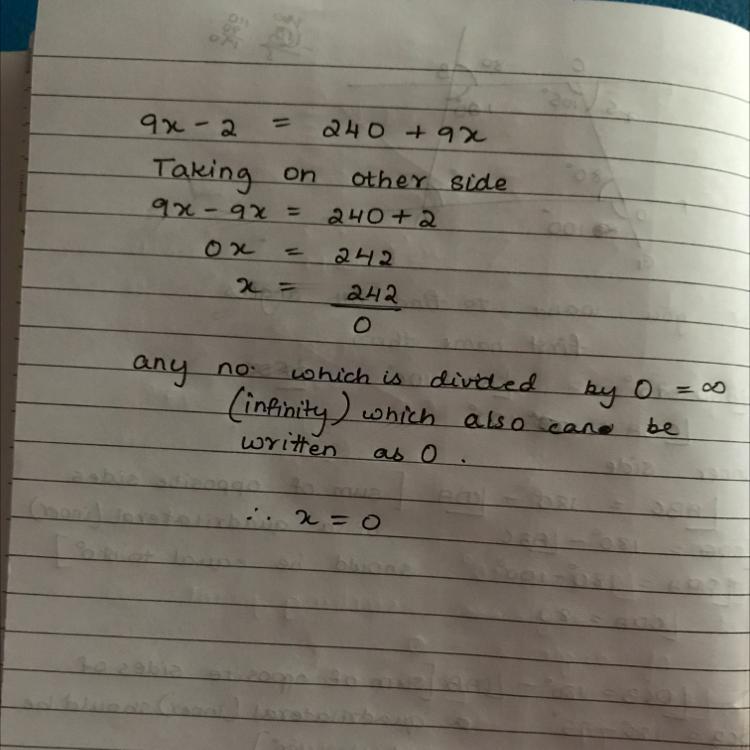 9x - 2 = 240 + 9x
Taking on other side
9x - 9x = 240 + 2
0x = 242
x = 242
0
any no. which is divided by 0 = ∞
(infinity) which also can be
written as 0.
∴ x = 0